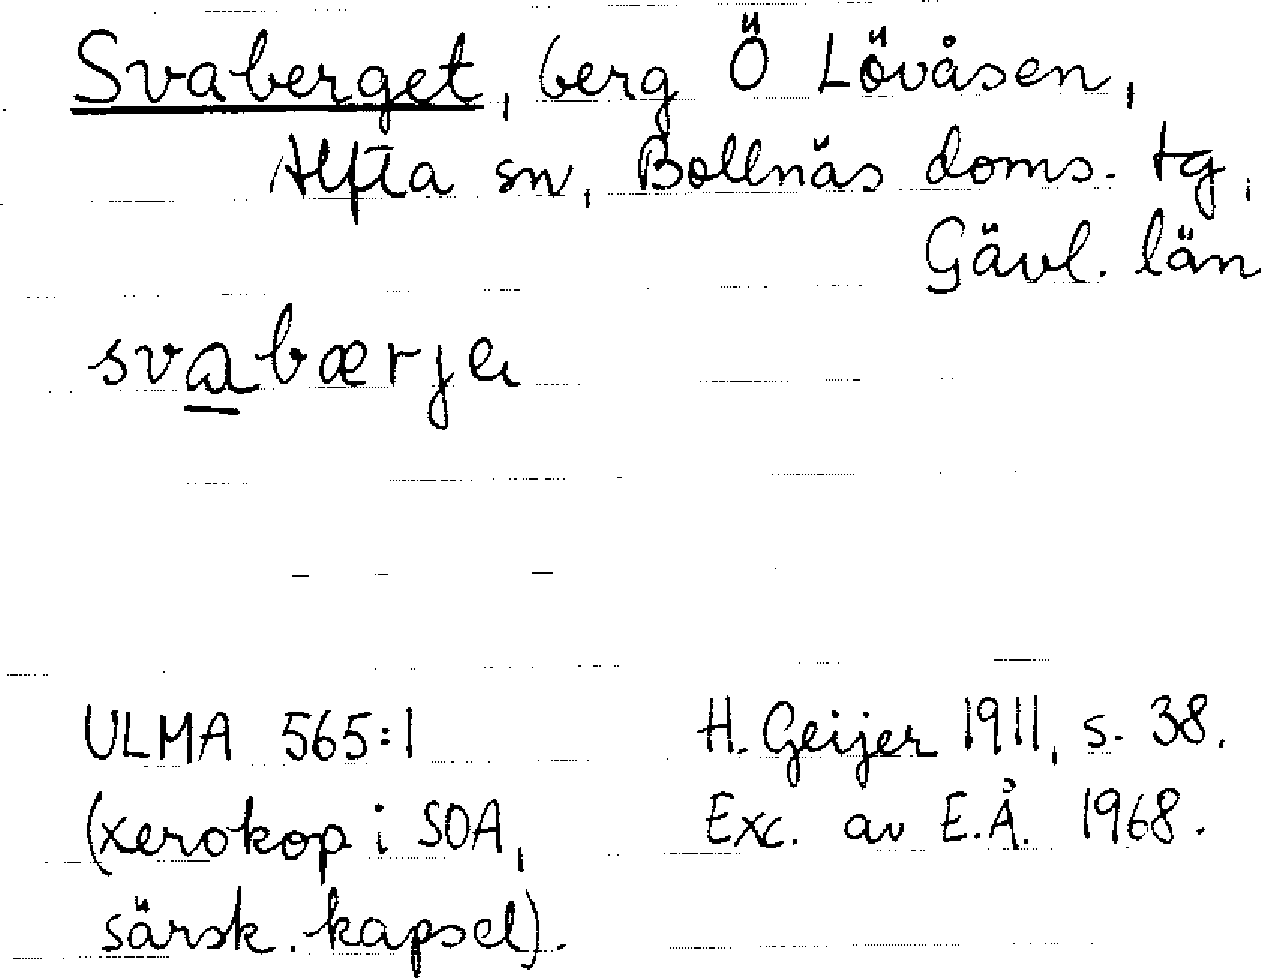 Svaberget, berg Ö Lövåsen,
Alfta sn, Bollnäs doms. tg,
Gävl. län
svabærje
ULMA 565:1
(xerokop i SOA,
särsk. kapsel).
H. Geijer 1911, s. 38.
Exc. av E.Å. 1968.